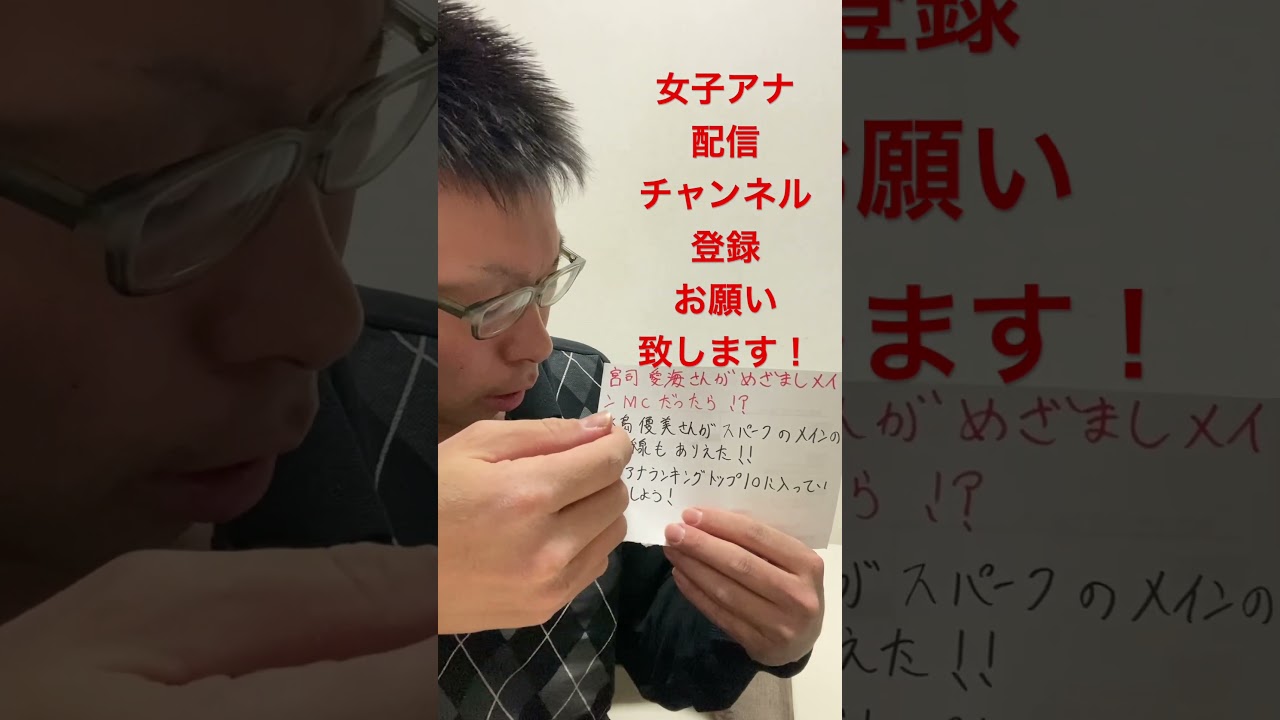 女子アナ
配信
チャンネル
登録
お願い
致します！
宮司愛海さんがめざましメイ
ンMCだったら!?
島優美さんがスパークのメインの
線もありえた!!
アナランキングトップ10に入ってい
しょう!
登録
お願い
ます！
んがめざましメイ
ら!?
がスパークのメインの
えた!!